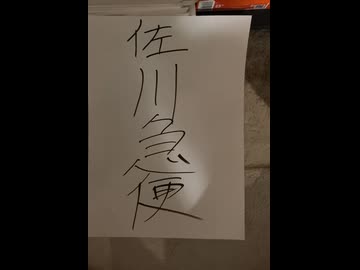 佐川急便